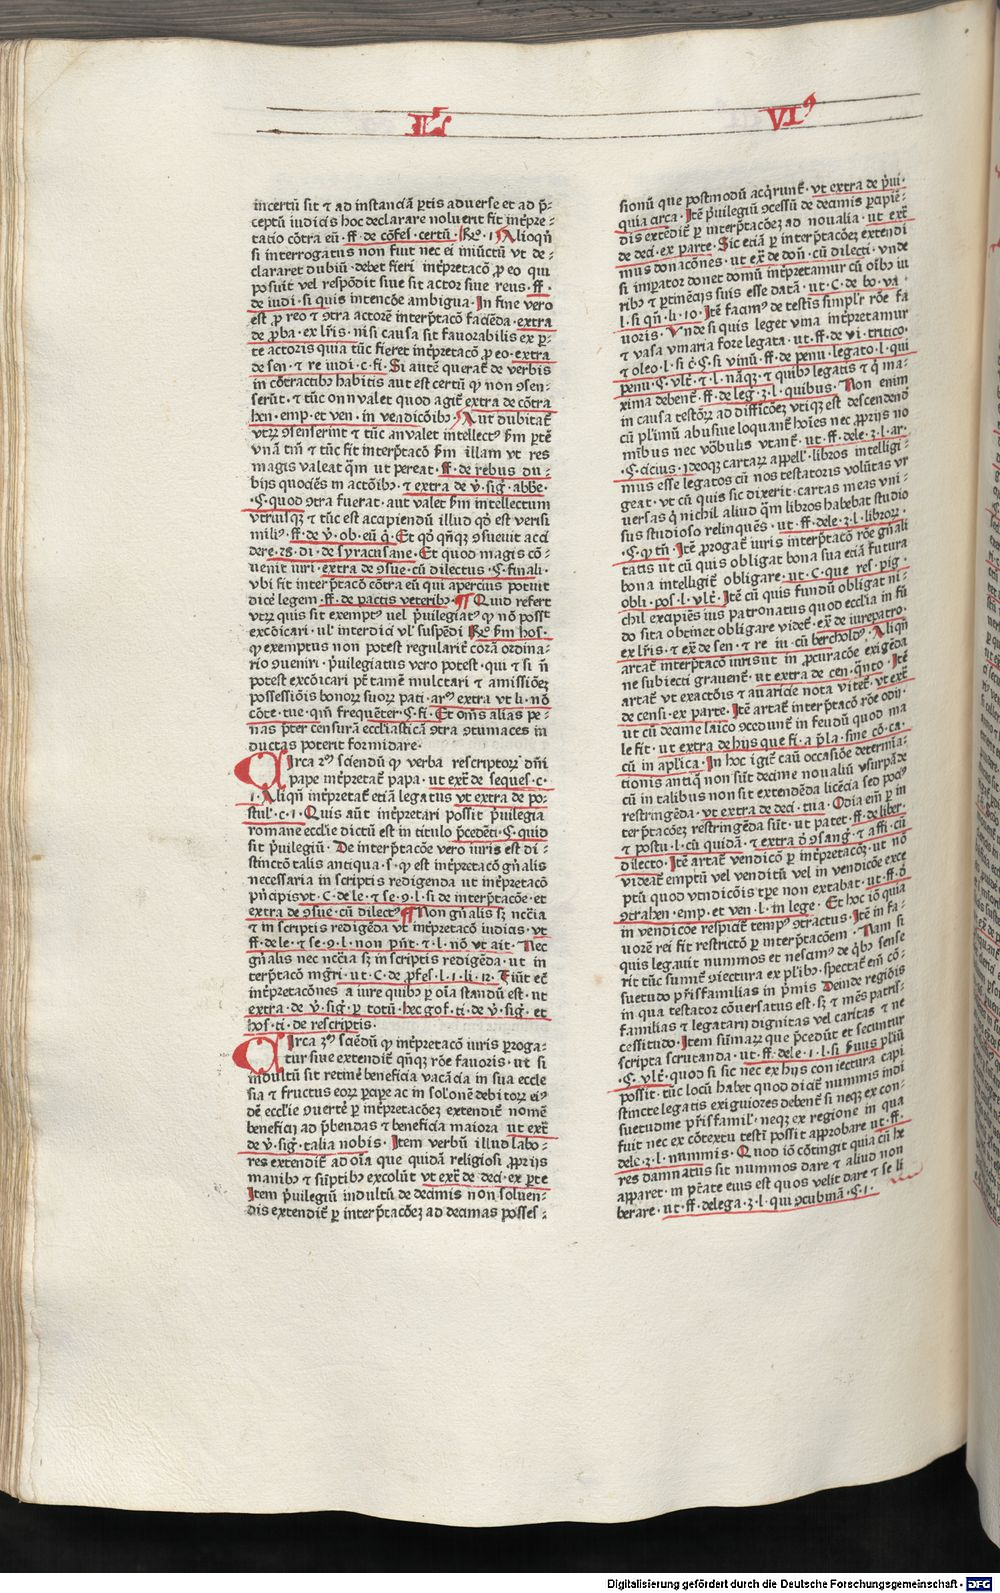 L VIꝰ
incertū sit ⁊ ad instanciā ꝑtis aduerse et ad p̄-
ceptū iudicis hoc declarare noluerit fit int̄pre-
tatio cōtra eū · ff · de cōfes̄ · certū · R̄o · 1 · Alioqn̄
si interrogatus non fuit nec ei iniūctū vt de-
clararet dubiū · debet fieri int̄pretacō ꝓ eo qui
posuit vel respōdit siue sit actor siue reus · ff ·
de iudi · si quis intencōe ambigua · In fine vero
est ꝓ reo ⁊ ꝯtra actorē interp̄tacō faciēda · extra
de ꝓba · ex lr̄is · nisi causa sit fauorabilis ex ꝑ-
te actoris quia tūc fieret int̄pretacō ꝓ eo · extra
de sen · ⁊ re iudi · c · fi · Si autē querat̄ de verbis
in cōtractibꝫ habitis aut est certū ꝙ non ꝯsen-
serūt · ⁊ tūc non valet quod agit̄ extra de cōtra
hen · emp · et ven · in vendicōibꝫ · Aut dubitat̄
vtrꝫ ꝯsenserint ⁊ tūc an valet intellectꝰ ẜm ꝑtē
vnā tm̄ ⁊ tūc fit interp̄tacō ẜm illam vt res
magis valeat q̄m ut pereat · ff · de rebus du-
bijs quociēs in actōibꝫ · ⁊ extra de v̄ · siḡ · abbe ·
· ꝯ · quod ꝯtra fuerat · aut valet ẜm intellectum
vtriusqꝫ ⁊ tūc est accipiendū illud qd̄ est verisi
miliꝰ · ff · de v̄ · ob · eū q̄ · Et qd̄ qn̄qꝫ ꝯsueuit acci
dere · 28 · di · de syracusane · Et quod magis cō-
uenit iuri · extra de ꝯsue · cū dilectus · ꝯ · finali ·
vbi fit interp̄tacō cōtra eū qui apercius potuit
dicē legem · ff · de pactis veteribꝫ · ¶ Quid refert
vtrꝫ quis sit exemptꝰ uel p̄uilegiatꝰ ꝙ nō posst̄
excōicari · ul̄ interdici vl̄ suspēdi R̄o ẜm hos̄ ·
ꝙ exemptus non potest regularit̄ corā ordina-
rio ꝯueniri · p̄uilegiatus vero potest · qui ⁊ si n̄
potest excōicari pēt tamē mulctari ⁊ amissiōeꝫ
possessiōis bonoꝝ suoꝝ pati · arꝰ extra vt li · nō
cōte · tue · qm̄ frequēter · ꝯ · fi · Et om̄s alias pe-
nas p̄ter censurā eccl̄iasticā ꝯtra ꝯtumaces in
ductas poterit formidare ·
Circa 2ꝰ sciendū ꝙ verba rescriptoꝝ dn̄i
pape int̄pretat̄ papa · ut ext̄ de seques̄ · c ·
· 1 · Aliqn̄ int̄pretat̄ etiā legatus vt extra de po-
stul̄ · c · 1 · Quis aūt interpretari possit p̄uilegia
romane eccl̄ie dictū est in titulo p̄cedēti · ꝯ · quid
sit p̄uilegiū · De interp̄tacōe vero iuris est di-
stinctō talis antiqua · s · ꝙ est int̄pretacō gn̄alis
necessaria in scriptis redigenda ut int̄pretacō
pn̄cipis vt · C · de le · ⁊ ꝯse · 9 · l · si de interp̄tacōe · et
extra de ꝯsue · cū dilectꝰ ¶ Non gn̄alis sꝫ nccīa
⁊ in scriptis redigēda vt int̄pretacō iudicis · vt
ff · de le · ⁊ se · 9 · l · non pn̄t · ⁊ · l · nō vt ait · Nec
gn̄alis nec nccīa sꝫ in scriptis redigēda · ut in
terp̄tacō mgr̄i · ut · C · de ꝓfes̄ · l · 1 · li · 12 · Fiūt eē
int̄pretacōnes a iure quibꝫ ꝑ oīa standū est · ut
extra · de v̄ · siḡ · ꝑ totū · hec gof · ti · de v̄ · siḡ · et
hos̄ · ti · de rescriptis ·
Circa 3ꝰ sciēdū ꝙ int̄pretacō iuris ꝓroga-
tur siue extendit̄ qn̄qꝫ rōe fauoris · ut si
indultū sit retinē beneficia vacācia in sua eccle
sia ⁊ fructus eoꝝ ꝑcipe ac in solōnē debitoꝝ eiꝰ
dē eccl̄ie ꝯuertē ꝑ interp̄tacōeꝫ extendit̄ nomē
beneficij ad p̄bendas ⁊ beneficia maiora ut ext̄
de v̄ · siḡ · talia nobis · Item verbū illud labo-
res extendit̄ ad oīa que quidā religiosi ꝓprijs
manibꝫ ⁊ sūptibꝫ excolūt vt ext̄ de deci · ex ꝑte
Item p̄uilegiū indultū de decimis non soluen-
dis extendit̄ ꝑ interp̄tacōeꝫ ad decimas posses-
sionū que postmodū acq̄runt̄ · vt extra de p̄ui ·
quia circa · Itē p̄uilegiū ꝯcessū de decimis ꝑcipiē-
dis extēdit̄ ꝑ interp̄tacōeꝫ ad noualia · ut ext̄
de deci · ex parte · Sic etiā ꝑ interp̄tacōeꝫ extendi
mus donacōnes · ut ex̄ de don̄ · cū dilecti · vnde
si imꝑator donet domū int̄pretamur cū oībꝫ iu
ribꝫ ⁊ ꝑtinēcijs suis esse datā · ut · C · de bo · va ·
l · si qn̄ · li · 10 · Itē facimꝰ de testīs simpl̄r rōe fa
uoris · Vnde si quis leget vina interpretamur
⁊ vasa vinaria fore legata · ut · ff · de vi · tritico ·
⁊ oleo · l · si c̄ · ꝯ · si vinū · ff · de penu · legato · l · qui
penū · ꝯ · vlt̄ · ⁊ · l · nāqꝫ · ⁊ quibꝫ legatis ⁊ q̄ ma-
xima debent̄ · ff · de leg · 3 · l · quibus · Non enim
in causa testōꝝ ad difficōeꝫ vtiqꝫ est descendend̄
cū pl̄imū abusiue loquant̄ hoīes nec ꝓprijs no
mībus nec vōbulis vtant̄ · ut · ff · de le · 3 · l · ar ·
· ꝯ · cicius · ideoqꝫ cartaꝝ appell̄ · libros intelligi-
mus esse legatos cū nos testatoris volūtas vr
geat · vt cū quis sic dixerit · cartas meas vni-
uersas q̄ nichil aliud q̄m libros habebat studio
sus studioso relinquēs · ut · ff · de le · 3 · l · libroꝝ ·
· ꝯ · ꝙ tn̄ · Itē ꝓrogat̄ iuris interp̄tacō rōe gn̄ali
tatis ut cū quis obligat bona sua etiā futura
bona intelligit̄ obligare · ut · C · que res · pig ·
obli · pos̄ · l · vlt̄ · Itē cū quis fundū obligat ni-
chil excipiēs ius patronatus quod eccl̄ia in fū
do sita obtinet obligare videt̄ · ex̄ de iurepatro ·
ex lr̄is · ⁊ ex̄ de sen · ⁊ re iu · cū bercholdꝰ · Aliqn̄
artat̄ interp̄tacō iuris ut in ꝓcuracōe exigēda
ne subiecti grauent̄ · ut extra de cen · qn̄to · Itē
artat̄ vt exactōis ⁊ auaricie nota vitet̄ · vt ext̄
de censi · ex parte · Itē artat̄ interp̄tacō rōe odij ·
ut cū decime laico ꝯcedunt̄ in feudū quod ma
le fit · ut extra de hijs que fi · a p̄la · sine cō · ca ·
cū in aplīca · In hoc igit̄ caū occasiōe determīa-
tionis antiq̄ non sūt decime noualiū vsurpāde
cū in talibus non sit extendēda licēcia sed pociꝰ
restringēda · vt extra de deci · tua · Odia em̄ ꝑ in
terp̄tacōeꝫ restringēda sūt · ut patet · ff · de liber ·
⁊ postu · l · cū quidā · ⁊ extra d̄ ꝯsanḡ · ⁊ affi · cū
dilecto · Itē artat̄ vendicō ꝑ int̄pretacōeꝫ · ut nō
videat̄ emptū vel venditū vel in vendicōe exce
ptū quod vēdicōis tꝑe non extabat · ut · ff · d̄
ꝯtrahen · emp · et ven · l · in lege · Et hoc iō quia
in vendicōe respicit̄ tempꝰ ꝯtractus · Itē in fa-
uorē rei fit restrictō ꝑ interp̄tacōem · Nam si
quis legauit nummos et nescimꝰ de q̄bꝫ sense
rit tūc sumit̄ ꝯiectura ex pl̄ibꝫ · spectat̄ em̄ cō-
suetudo pr̄isfamilias in p̄mis Deinde regiōis
in qua testator cōuersatus est · sꝫ ⁊ mēs patris-
familias ⁊ legatarij dignitas vel caritas ⁊ ne
cessitudo · Item sūmaꝝ que p̄cedūt et secuntur
scripta scrutanda · ut · ff · de le · 1 · l · si ẜuus pl̄iū
· ꝯ · vlt̄ · quod si sic nec ex hijs coniectura capi
possit · tūc locū habet quod dicit̄ nummis indi
stincte legatis exiguiores debent̄ si neqꝫ ex con-
suetudine pr̄isfamil̄ · neqꝫ ex regione in qua
fuit nec ex cōtextu testī possit approbare ut · ff ·
de le · 3 · l · nummis · Quod iō cōtingit quia cū he
res damnatus sit nummos dare ⁊ aliud non
apparet · in ptāte eius est quos velit dare ⁊ se li
berare · ut · ff · de lega · 3 · l · qui ꝯcubinā · ꝯ · 1 ·
Digitalisierung gefördert durch die Deutsche Forschungsgemeinschaft - DFG